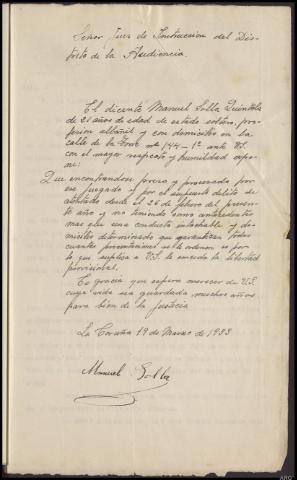 Señor Juez de Instruccion del Dis-
trito de la Audiencia.
El dicente Manuel Solla Quintela
de 21 años de edad de estado soltero, pro-
fesion albañil y con domicilio en la
calle de la Torre nº 144-1º ante VS.
con el mayor respeto y humildad expo-
ne:
Que encontrandose preso y procesado por
ese juzgado por el supuesto delito de
atentado desde el 26 de febrero del presen-
te año y no teniendo como antecedentes
mas que una conducta intachable y do-
micilio determinado que garantizan
cuantas se le ordenen es por
lo que suplica a VS. le conceda la libertad
provisional.
Es gracia que espera merecer de VS.
cuya vida sea guardada muchos años
para bien de la Justicia
La Coruña 19 de Marzo de 1933
Manuel Solla